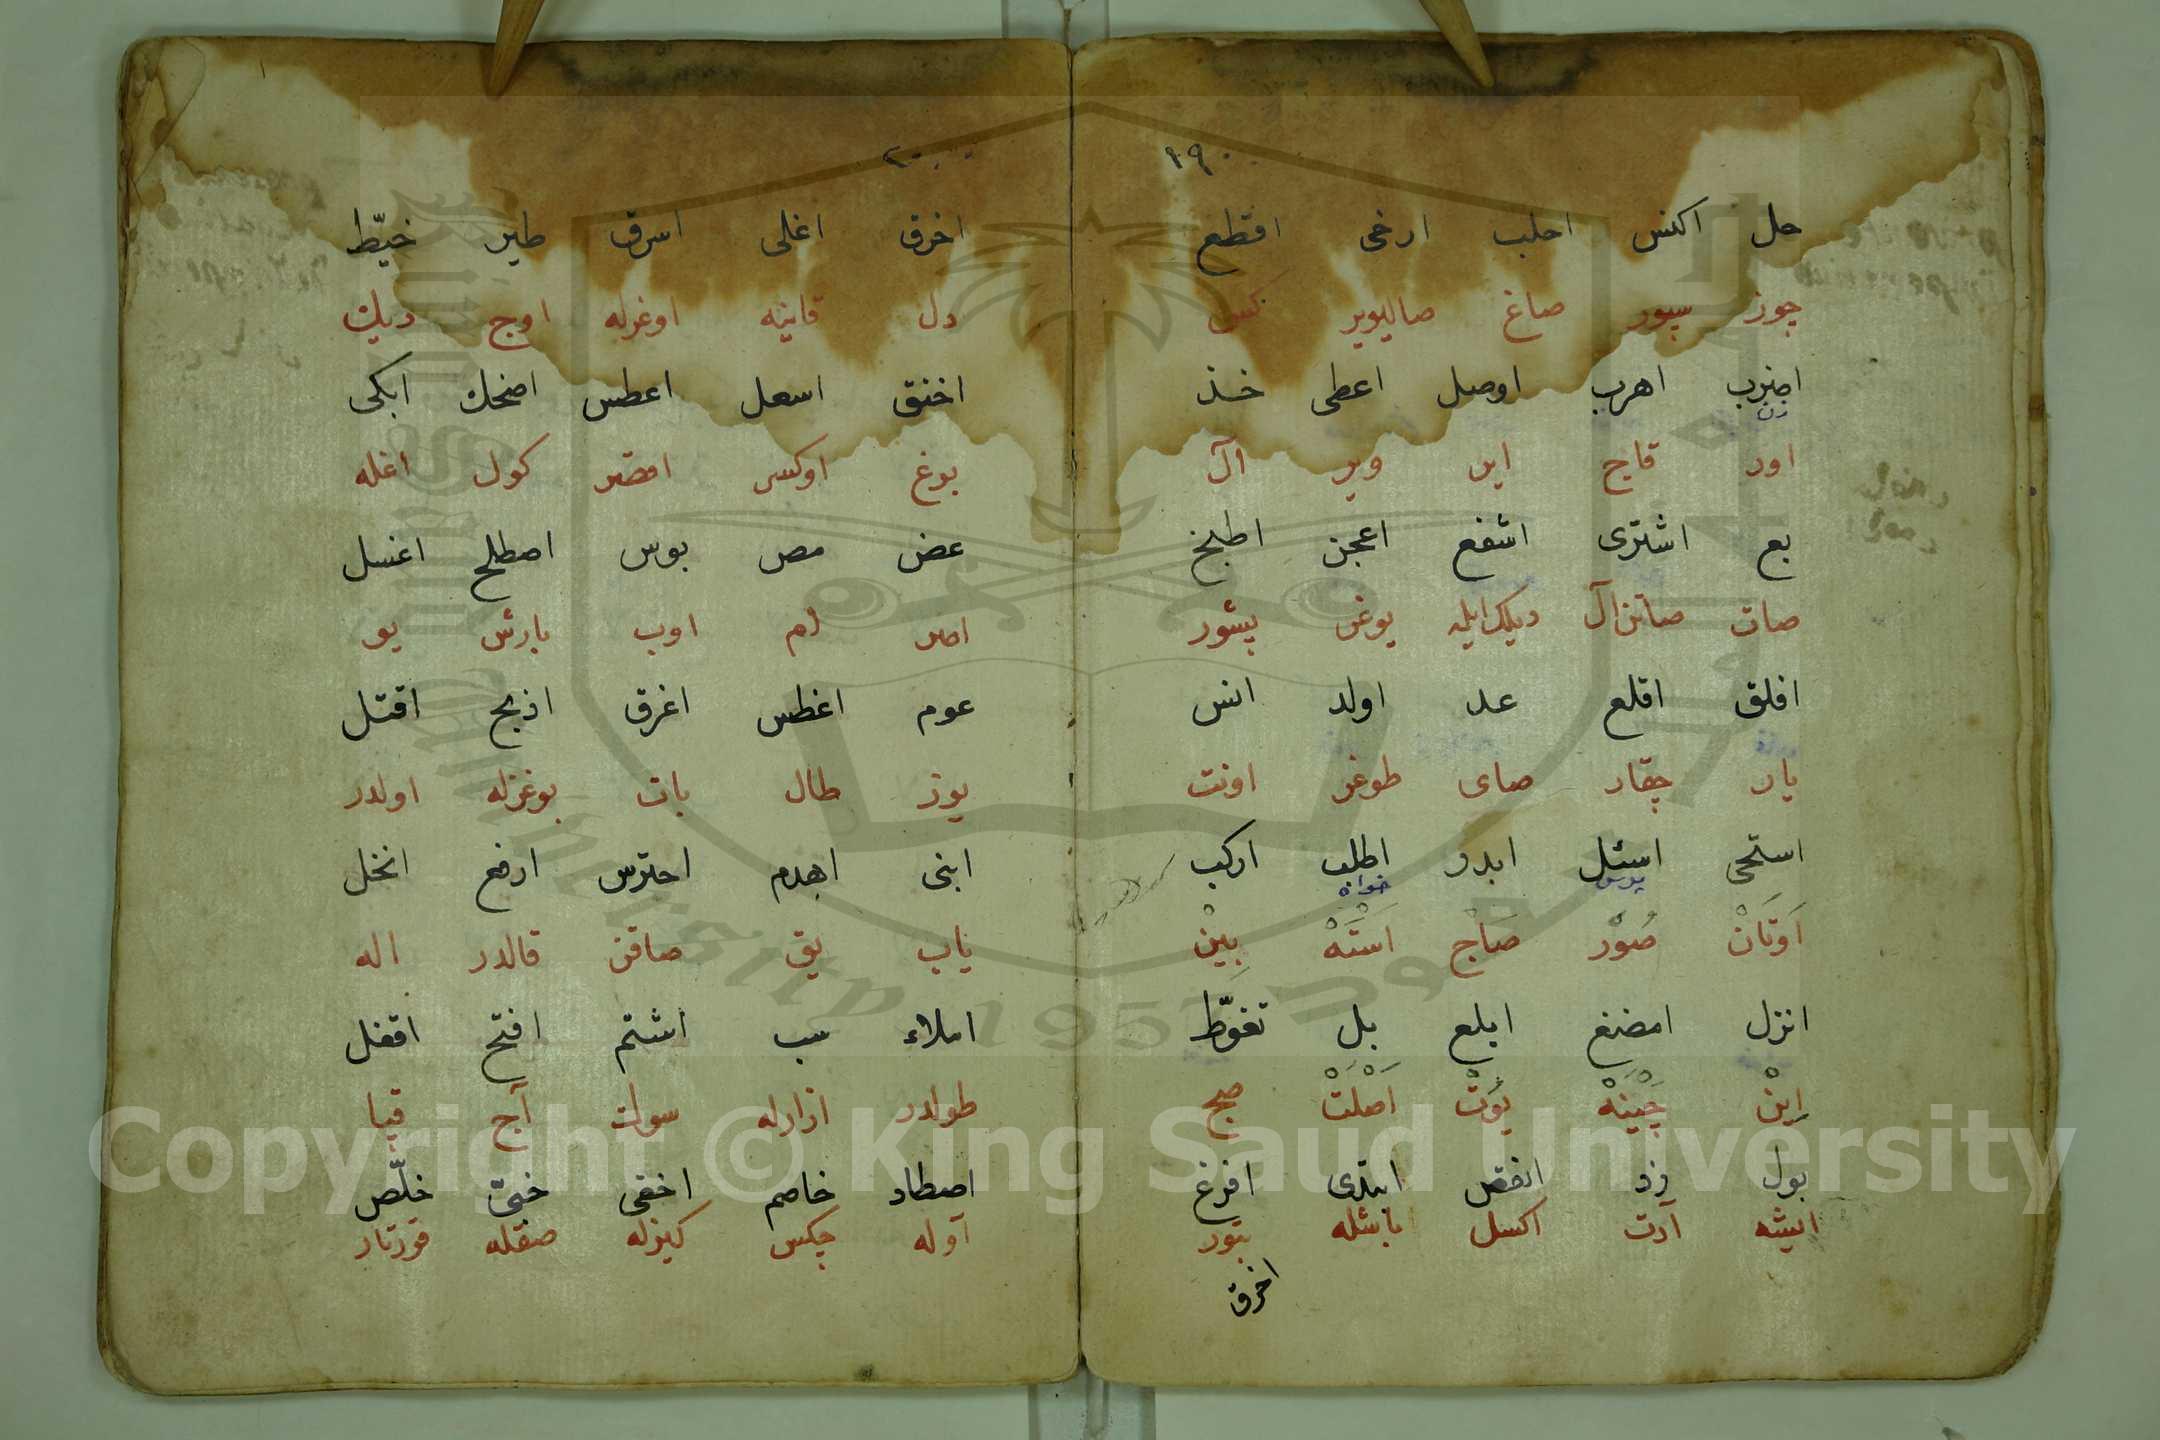 ١٩
حل اكنس احلب ارخى اقطع
چوز سپور صاغ صاليوير كس
اضرب اهرب اوصل اعطى خذ
زن
اور قاچ اير وير آل
بع اشترى اشفع اعجن اطبخ
صات صاتن آل ديلك ايله يوغر پشور
افلق اقلع عد اولد انس
يار چقار صاى طوغر اونت
استحى اسئل ابدر اطلب اركب
پرس خواه
اَوتَانْ صُوْر صَاچْ اَسْتَهْ بِينْ
انزل امضغ ابلع بل تغوّط
اِينْ چَيْنَهْ يُوْتْ اَصْلَتْ صچ
بول زد انقص ابتدى افرغ
ايشه آرت اكسل باشله
اخرق
٢٠
اخرق اغلى اسرق طير خيّط
دل قاينه اوغرله اوچ ديك
اخنق اسعل اعطس اضحك ابكى
بوغ اوكسر اقصر كول اغله
عض مص بوس اصطلح اغسل
اصر ام اوپ بارش يو
عوم اغطس اغرق اذبح اقتل
يوز طال بات بوغزله اولدر
ابنى اهدم احترس ارفع انخل
ياپ يق صاقن قالدر اله
املاء سب اشتم افتح اقفل
طولدر ازارله سوك آچ قپا
اصطاد خاصم اخفى خبّئ خلّص
آوله چكش كيزله صقله قورتار
Copyright © King Saud University
King Saud University 1957